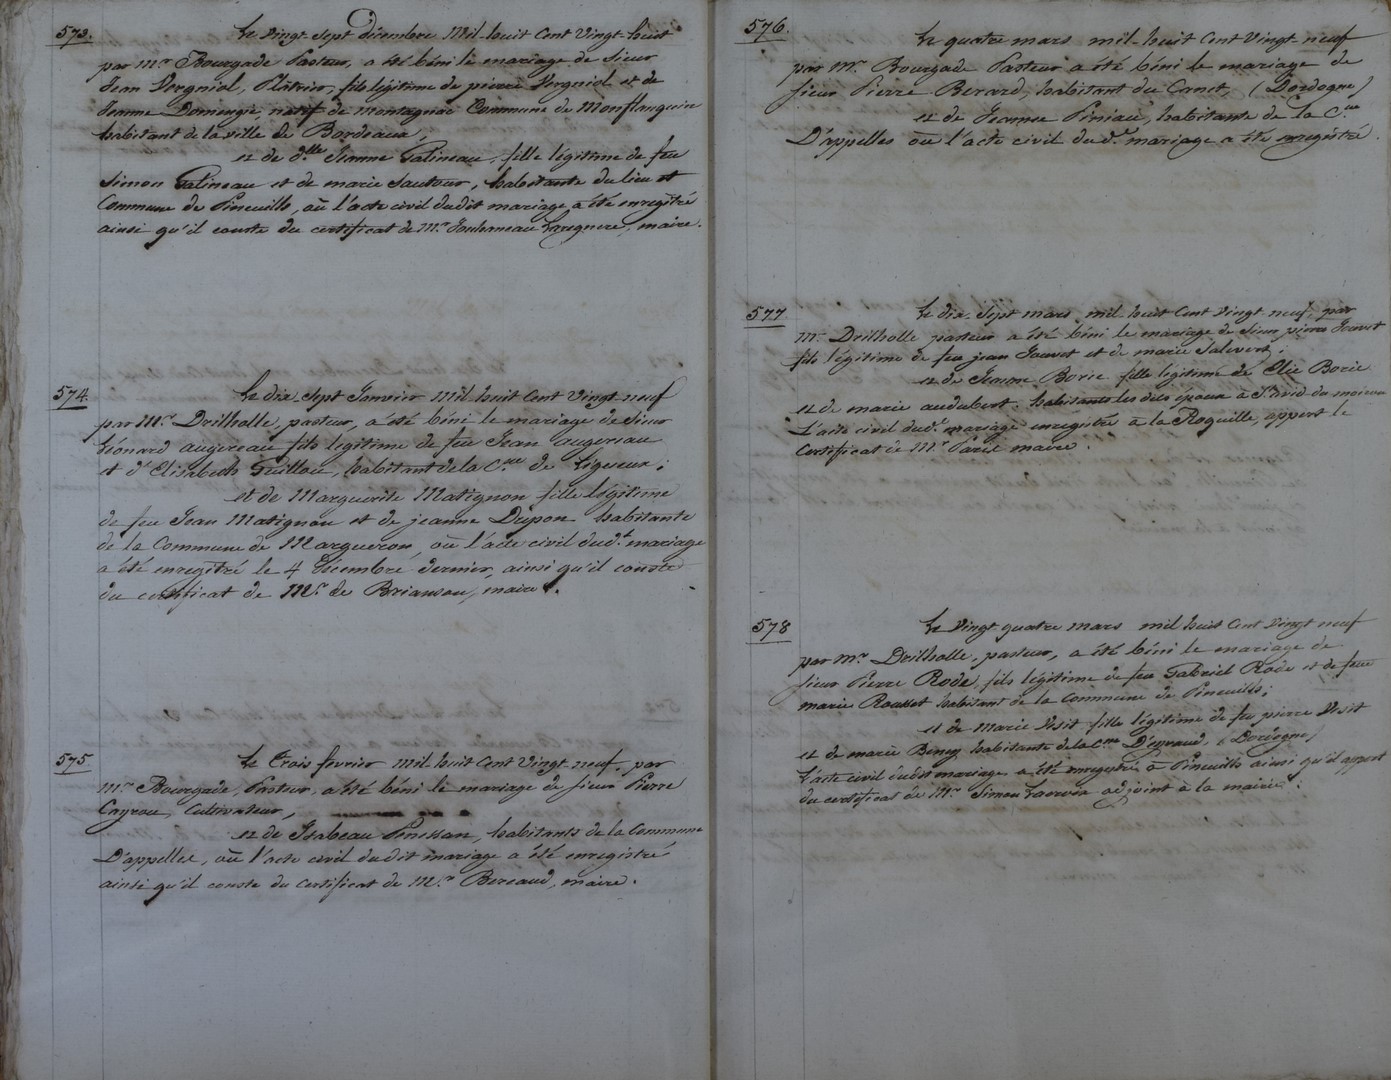 573.
Le vingt sept décembre Mil huit Cent vingt huit
par mr Bourgade Pasteur, a été béni le mariage de Sieur
Jean Vergniol, Plâtrier, fils légitime de pierre Vergniol et de
Jeanne Domengie, natif de montagnac Commune de Monflanquin
habitant de la ville de Bordeaux,
et de dlle Jeanne Galineau, fille légitime de feu
Simon Galineau et de marie Sautour, habitante du lieu et
Commune de Pineuilh, où l'acte civil dudit mariage a été enregitré
ainsi qu'il conste du certificat de Mr Jouhanneau Laregnere, maire.
574.
Le dix-Sept Janvier Mil huit Cent Vingt neuf
par Mr. Drilholle, pasteur, a été béni le mariage de Sieur
Léonard augereau fils légitime de feu Jean augereau
et d'Elisabeth Guillou, habitant de la Cne de Ligueux;
et de Marguerite Matignon fille légitime
de feu Jean Matignon et de jeanne Dupon habitante
de la Commune de Margueron, où l'acte civil dudt mariage
a été enregitré le 4 Décembre dernier, ainsi qu'il conste
du certificat de Mr. de Brianson, maire.
575.
Le Trois février Mil huit Cent Vingt neuf, par
Mr Bourgade, Pasteur, a été béni le mariage de sieur Pierre
Cayrou, Cultivateur,
et de Isabeau Pinessan, habitants de la Commune
D'appelles, où l'acte civil dudit mariage a été enregistré
ainsi qu'il conste du Certificat de Mr. Bereaud, maire.
576.
Le quatre mars mil huit Cent vingt-neuf
par Mr. Bourgade Pasteur a été béni le mariage de
Sieur Pierre Berard, habitant du Canet, (Dordogne)
et de Jeanne Piniaud, habitante de la Cne
D'appelles où l'acte civil dudt mariage a été enregistré.
577
Le dix Sept mars mil huit Cent vingt neuf, par
Mr Drilholle pasteur a été béni le mariage de Sieur pierre Jouvet
fils légitime de feu jean Jouvet et de marie Salevert;
et de Jeanne Borie fille légitime de Elie Borie
et de marie audubert, habitants les dits époux à St avid du moiron
L'acte civil dudt mariage enregistré à la Roquille, appert le
Certificat de Mr Paris maire.
578
Le Vingt quatre mars mil huit Cent vingt neuf
par Mr Drilholle, pasteur, a été béni le mariage de
Sieur Pierre Rode, fils légitime de feu Gabriel Rode et de feue
marie Rousset habitant de la Commune de Pineuilh;
et de Marie Visit fille légitime de feu pierre Visit
et de marie habitante de la Cne (Dordogne)
L'acte civil dudit mariage a été enregistré à Pineuilh ainsi qu'il appert
du certificat de Mr Simon adjoint à la mairie.